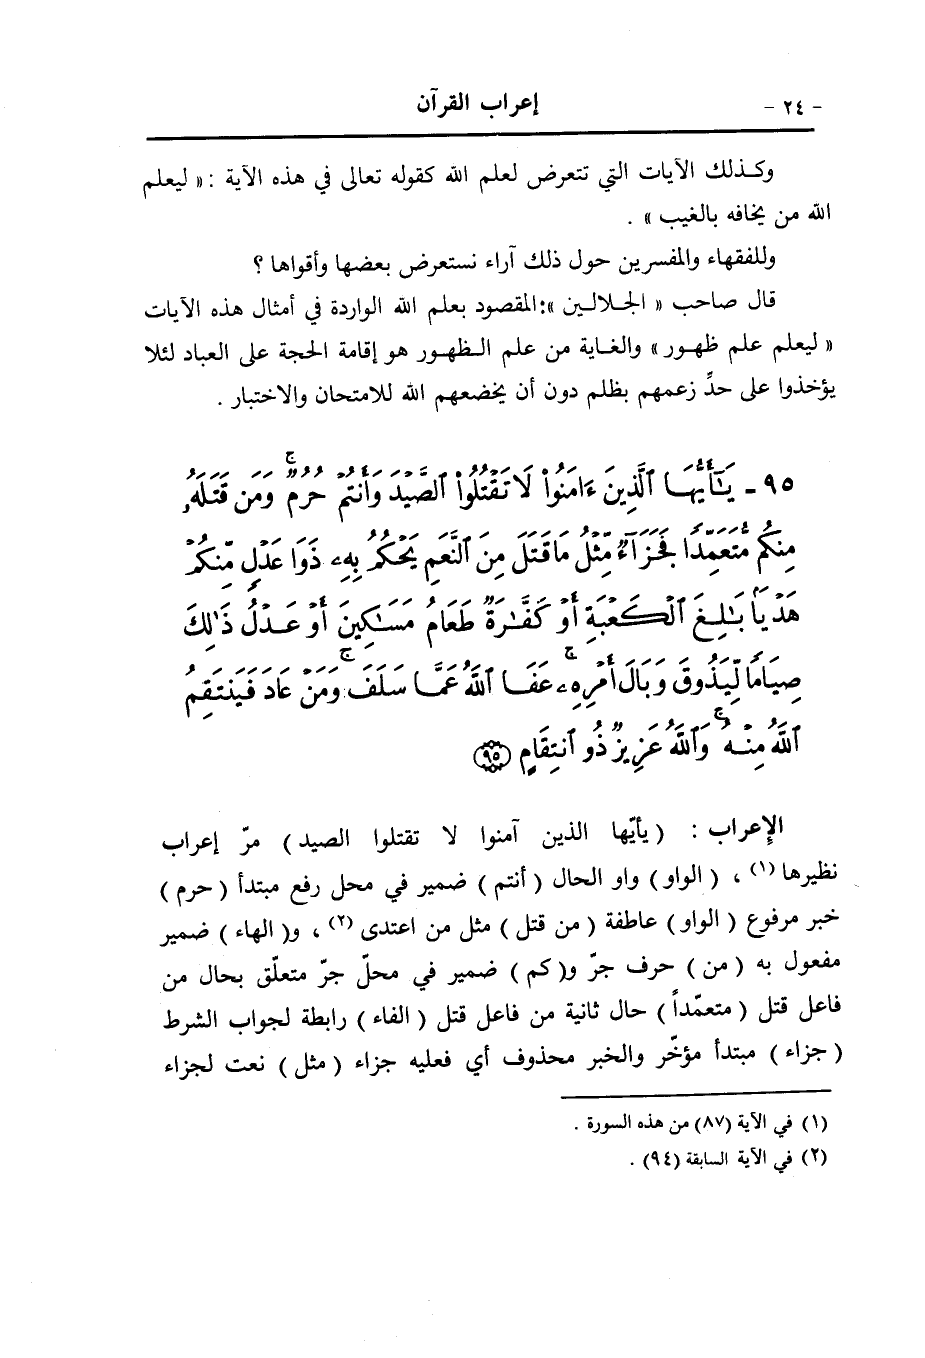 - ٢٤ - إعراب القرآن
وكذلك الآيات التي تتعرض لعلم الله كقوله تعالى في هذه الآية : « ليعلم
الله من يخافه بالغيب » .
وللفقهاء والمفسرين حول ذلك آراء نستعرض بعضها وأقواها ؟
قال صاحب « الجلالين »: المقصود بعلم الله الواردة في أمثال هذه الآيات
« ليعلم علم ظهور » والغاية من علم الظهور هو إقامة الحجة على العباد لئلا
يؤخذوا على حدِّ زعمهم بظلم دون أن يخضعهم الله للامتحان والاختبار .
٩٥ - يَٰٓأَيُّهَا ٱلَّذِينَ ءَامَنُوا۟ لَا تَقْتُلُوا۟ ٱلصَّيْدَ وَأَنتُمْ حُرُمٌ ۚ وَمَن قَتَلَهُۥ
مِنكُم مُّتَعَمِّدًا فَجَزَآءٌ مِّثْلُ مَا قَتَلَ مِنَ ٱلنَّعَمِ يَحْكُمُ بِهِۦ ذَوَا عَدْلٍ مِّنكُمْ
هَدْيًۢا بَٰلِغَ ٱلْكَعْبَةِ أَوْ كَفَّٰرَةٌ طَعَامُ مَسَٰكِينَ أَوْ عَدْلُ ذَٰلِكَ
صِيَامًا لِّيَذُوقَ وَبَالَ أَمْرِهِۦ ۗ عَفَا ٱللَّهُ عَمَّا سَلَفَ ۚ وَمَنْ عَادَ فَيَنتَقِمُ
ٱللَّهُ مِنْهُ ۗ وَٱللَّهُ عَزِيزٌ ذُو ٱنتِقَامٍ ﴿٩٥﴾
الإعراب : ( يأيّها الذين آمنوا لا تقتلوا الصيد ) مرّ إعراب
نظيرها (١) ، ( الواو ) واو الحال ( أنتم ) ضمير في محل رفع مبتدأ ( حرم )
خبر مرفوع ( الواو ) عاطفة ( من قتل ) مثل من اعتدى (٢) ، و( الهاء ) ضمير
مفعول به ( من ) حرف جرّ و( كم ) ضمير في محلّ جرّ متعلّق بحال من
فاعل قتل ( متعمّداً ) حال ثانية من فاعل قتل ( الفاء ) رابطة لجواب الشرط
( جزاء ) مبتدأ مؤخّر والخبر محذوف أي فعليه جزاء ( مثل ) نعت لجزاء
(١) في الآية (٨٧) من هذه السورة .
(٢) في الآية السابقة (٩٤) .